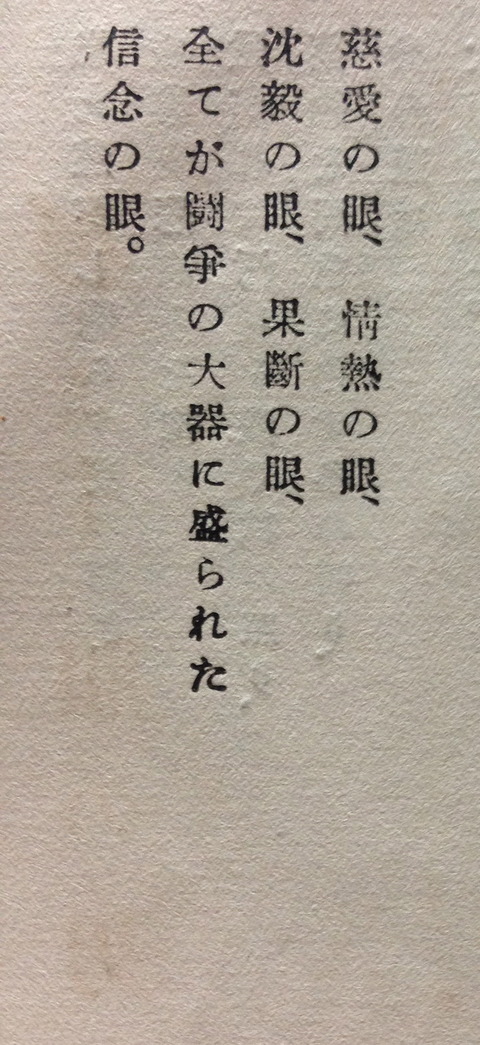 慈愛の眼、　情熱の眼、
沈毅の眼、　果斷の眼、
全てが鬪爭の大器に盛られた
信念の眼。